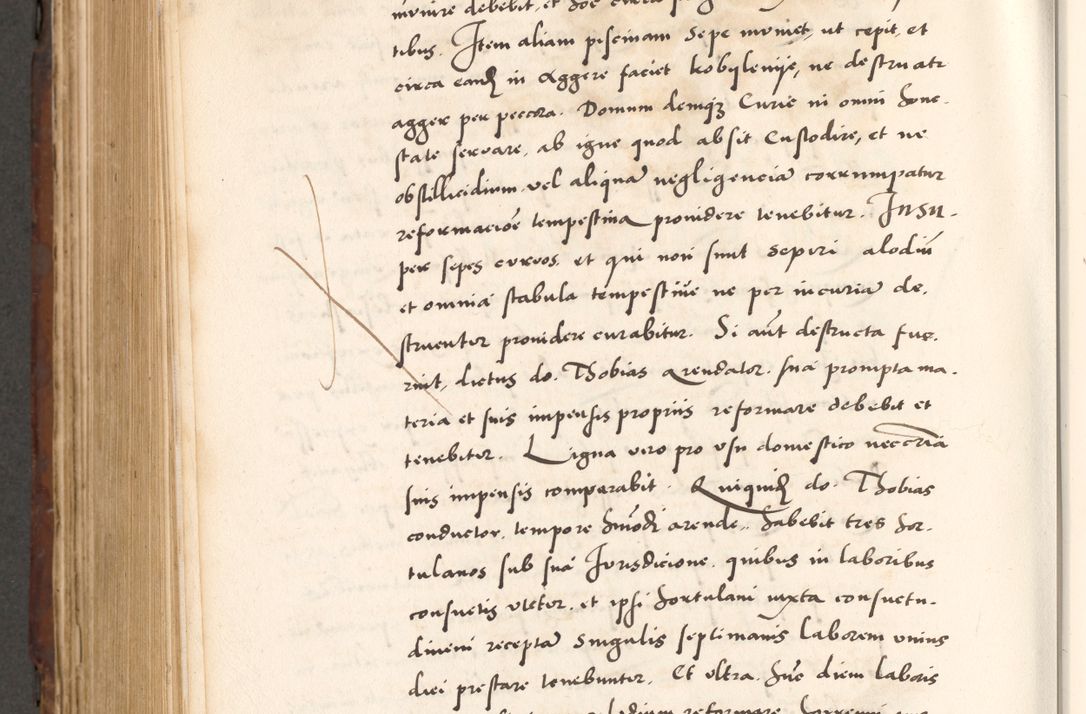 munire debebit, et hoc circa
tibus. Item aliam piscinam Sepe muniet, ut cepit, et
circa eand in Aggere faciet kobylenije, ne destruatr
agger per peccora. Domum demq3 Curie in omni hone-
state servare, ab igne quod absit Custodire, et ne
ob stillicidium vel aliqua negligencia corrumpatur
reformacioe tempestiua prouidere tenebitur. Insu-
per sepes curuos, et qui non sunt seperi alodiu
et omnia stabula tempestiue ne per incuria de-
struentur prouidere curabitur. Si aut destructa fue-
rint, dictus do. Thobias Arendator. sua prompta ma-
teria et suis impensis propriis reformare debebit et
tenebitur. Ligna vero pro usu domestico neccria
suis impensis comparabit. Quiquid do. Thobias
conductor, tempore hmodi arende, habebit tres hor-
tulanos sub sua Jurisdicione, quibus in laboribus
consuetis utetur, et ipsi hortulani iuxta consuetu-
dinem recepta Singulis septimanis laborem unius
diei prestare tenebuntur. Et ultra hunc diem laboris
reformare